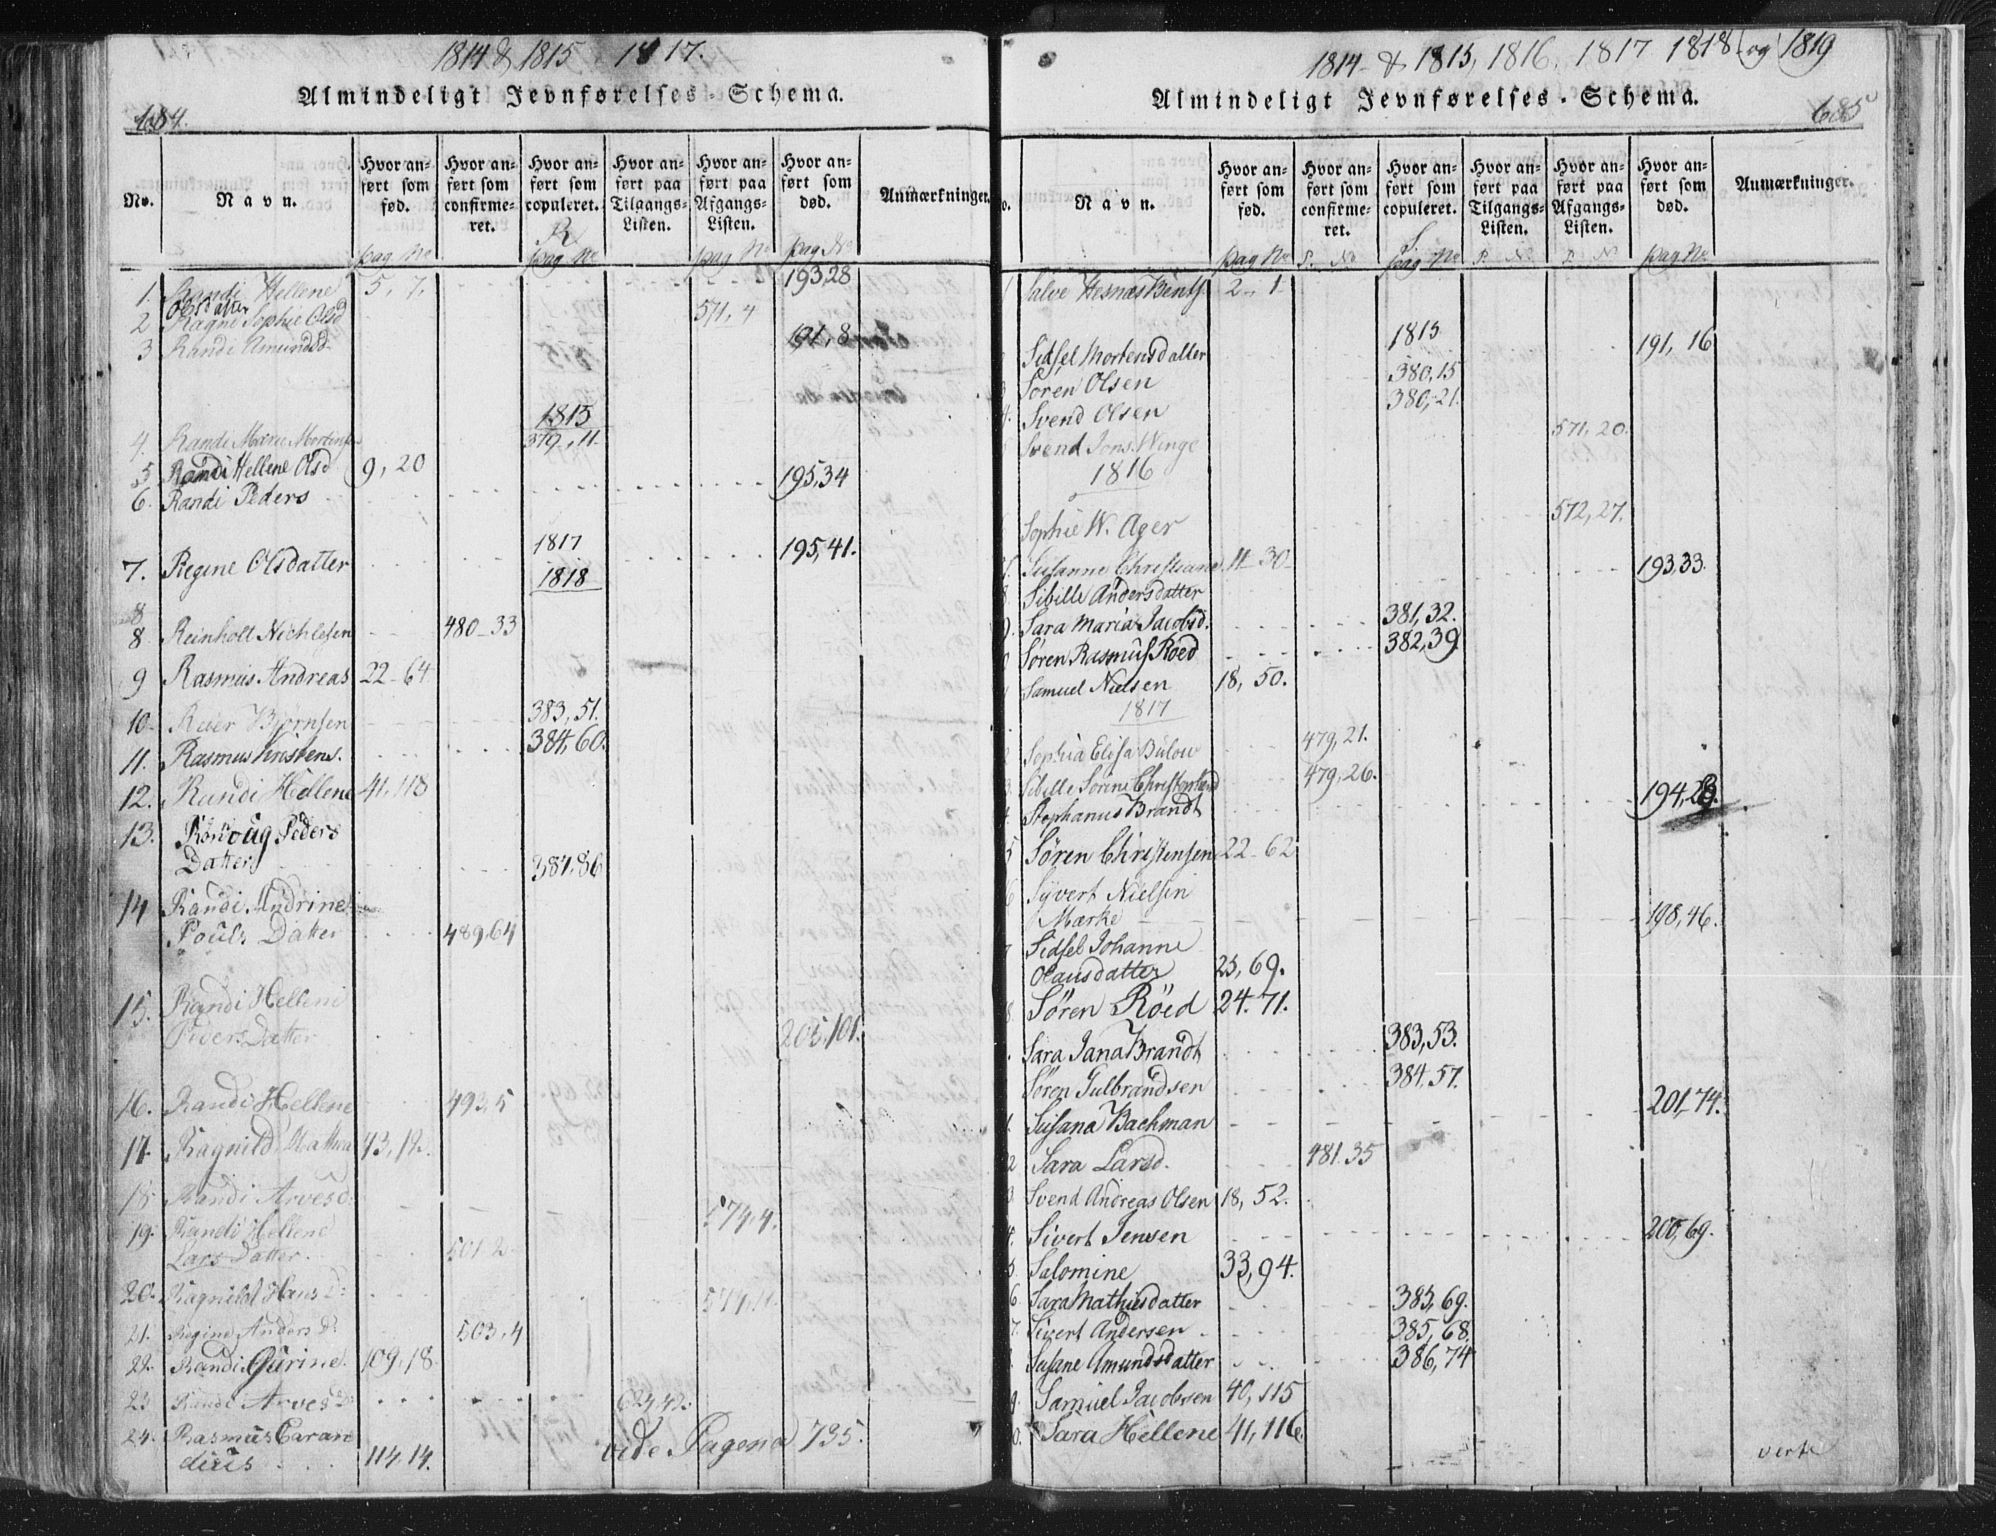 1814 & 1815 1817.
Almindeligt Jevnførelses-Schema.
684.
No.
Navn.
Hvor anført som fød.
Hvor anført som confirmeret.
Hvor anført som copuleret.
Hvor anført paa Tilgangs-Listen.
Hvor anført paa Afgangs-Listen.
Hvor anført som død.
Anmærkninger.
R
pag No pag No pag No pag No
1. Randi Hellene 5, 7, 193,28
Olsdatter
2 Ragne Sophie Olsd 571, 4
3 Randi Amundsd 191, 8
1815
4. Randi Marie Mortensd 379, 11.
5 Randi Hellene Olsd 9, 20
6. Randi Peders 195,34
1817
7. Regine Olsdatter 195,41.
1818
8
8 Reinholt Nichlesen 480-33
9 Rasmus Andreas 22-64
10. Reier Bjørnsen 383, 51.
11. Rasmus Christens. 384, 60.
12. Randi Hellene 41, 118
13. Peders
Datter 387,86
14 Randi Andrine
Pouls Datter 489,64
15. Randi Helleni
Peders Datter 205,101.
16. Randi Hellene 493,5
17. Ragnild Mathea 43, 12.
18 Randi Arvesd 574,4.
19. Randi Hellene
Lars Datter. 501 2
20. Ragnild Hans D:
21. Regine Anders D: 503,4
22. Randi Gurine. 109,18.
23 Randi Arves D: 624,42.
24. Rasmus Caran
dius 114,14.
vide Pagena 735.
1814 & 1815, 1816, 1817 1818 og 1819
Almindeligt Jevnførelses-Schema.
685
Navn.
Hvor anført som fød.
Hvor anført som confirmeret.
Hvor anført som copuleret.
Hvor anført paa Tilgangs-Listen.
Hvor anført paa Afgangs-Listen.
Hvor anført som død.
Anmærkninger.
S
pag No P. No pag No P. No P. N pag No
Salve Hesnæs Bents 2, 1
1815
Sidsel Mortensdatter 191, 16
Søren Olsen 380,15
Svend Olsen 380,21.
Svend Jons. Winge 571, 20.
1816
Sophie W. Ager 572,27.
Susanne Christiane 11-30 193,33.
Sibille Andersdatter
Sara Maria Jacobsd. 381,32.
Søren Rasmus Roed 382,39
Samuel Nielsen 18, 50.
1817
Sophia Elisa Bülow 479,21.
Sibille Sørine 479,26.
Stephanus Brandt 194,28.
5 Søren Christensen 22-62
6 Syvert Nielsen
Mærke 198,46.
7 Sidsel Johanne
Olausdatter 25, 69.
8 Søren Röed 24.71.
Sara Jana Brandt 383,53.
Søren Gulbrandsen 384,57.
1. Susana Bachman 201,74.
2 Sara Larsd. 481.35
3 Svend Andreas Olsen 18, 52.
4. Sivert Jensen 200,69.
5. Salomine 33,94.
6 Sara Mathiesdatter 385,69.
7. Sivert Andersen 385,68.
Susane Amundsdatter 386,74
9 Samuel Jacobsen 40,115
0. Sara Hellene 41,116.
verte